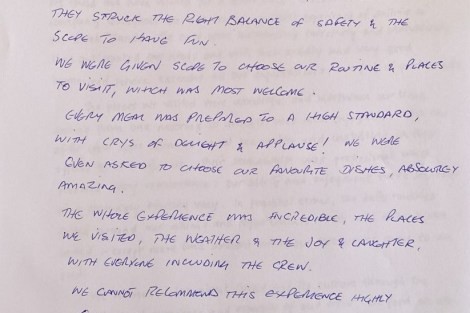 THEY STRUCK THE RIGHT BALANCE OF SAFETY & THE
SCOPE TO HAVE FUN.
WE WERE GIVEN SCOPE TO CHOOSE OUR ROUTINE & PLACES
TO VISIT, WHICH WAS MOST WELCOME.
EVERY MEAL WAS PREPARED TO A HIGH STANDARD,
WITH CRYS OF DELIGHT & APPLAUSE! WE WERE
EVEN ASKED TO CHOOSE OUR FAVOURITE DISHES, ABSOLUTELY
AMAZING.
THE WHOLE EXPERIENCE WAS INCREDIBLE, THE PLACES
WE VISITED, THE WEATHER & THE JOY & LAUGHTER,
WITH EVERYONE INCLUDING THE CREW.
WE CANNOT RECOMMEND THIS EXPERIENCE HIGHLY